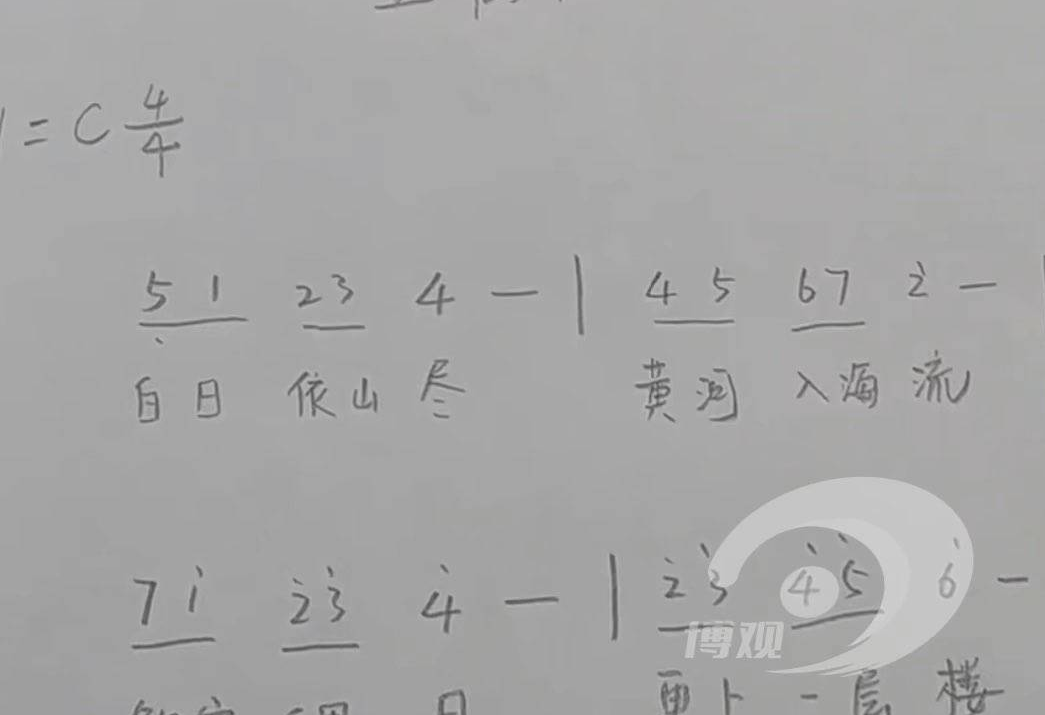 1=C 4/4
5̣ 1 2 3 4 - | 4 5 6 7 2̇ - |
白日 依山 尽 黄河 入海 流
7 1̇ 2̇ 3̇ 4̇ - | 2̇ 3̇ 4̇ 5̇ 6̇ -
更上 一层 楼
博观